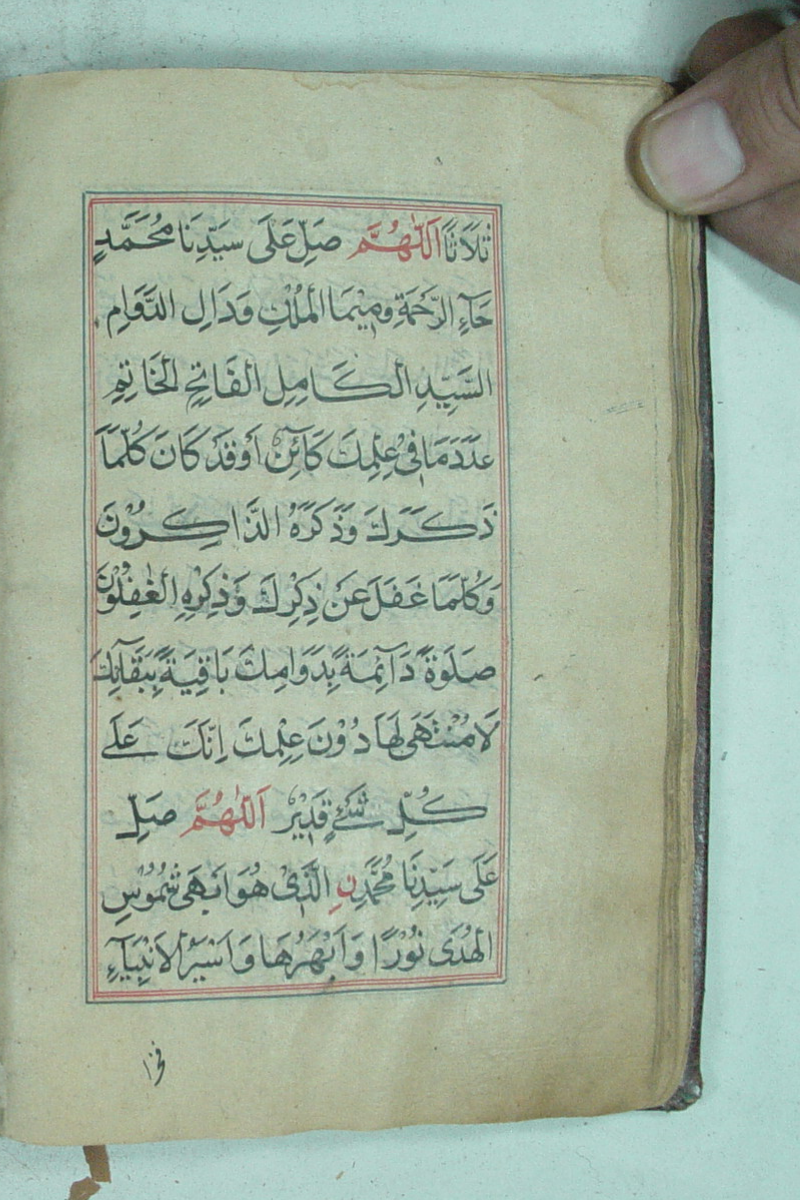 ثَلَاثًا اَللّٰهُمَّ صَلِّ عَلَى سَيِّدِنَا مُحَمَّدٍ
حَآءِ الرَّحْمَةِ وَمِيْمَا الْمُلْكِ وَدَالِ الدَّوَامِ
السَّيِّدِ الْكَامِلِ الْفَاتِحِ الْخَاتِمِ
عَدَدَ مَا فِيْ عِلْمِكَ كَآئِنٌ اَوْ قَدْ كَانَ كُلَّمَا
ذَكَرَكَ وَذَكَرَهُ الذَّاكِرُوْنَ
وَكُلَّمَا غَفَلَ عَنْ ذِكْرِكَ وَذِكْرِهِ الْغٰفِلُوْنَ
صَلَوٰةً دَآئِمَةً بِدَوَامِكَ بَاقِيَةً بِبَقَآئِكَ
لَا مُنْتَهَى لَهَا دُوْنَ عِلْمِكَ اِنَّكَ عَلَى
كُلِّ شَيْءٍ قَدِيْرٌ اَللّٰهُمَّ صَلِّ
عَلَى سَيِّدِنَا مُحَمَّدِنِ الَّذِيْ هُوَ اَبْهَى شُمُوْسِ
الْهُدَى نُوْرًا وَاَبْهَرُهَا وَاَسْيَرُ الْاَنْبِيَآءِ
فخرا